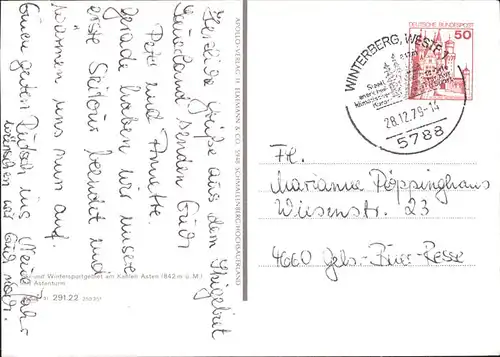 Herzliche Grüße aus dem Skigebiet
Sauerland senden Euch
Peter und Annette.
Gerade haben wir unsere
erste Skitour beendet und
wärmen uns nun auf.
Einen guten Rutsch ins Neue Jahr
wünschen wir Euch noch.
APOLLO-VERLAG H. & CO. 5948 SCHMALLENBERG/HOCHSAUERLAND
und Wintersportgebiet am Kahlen Asten (842 m ü. M.)
Astenturm
291.22
DEUTSCHE BUNDESPOST
50
WINTERBERG, WESTF
28.12.79-14
5788
Fr.
Marianne Pöppinghaus
Wiesenstr. 23
4660 Gels.-Buer-Resse